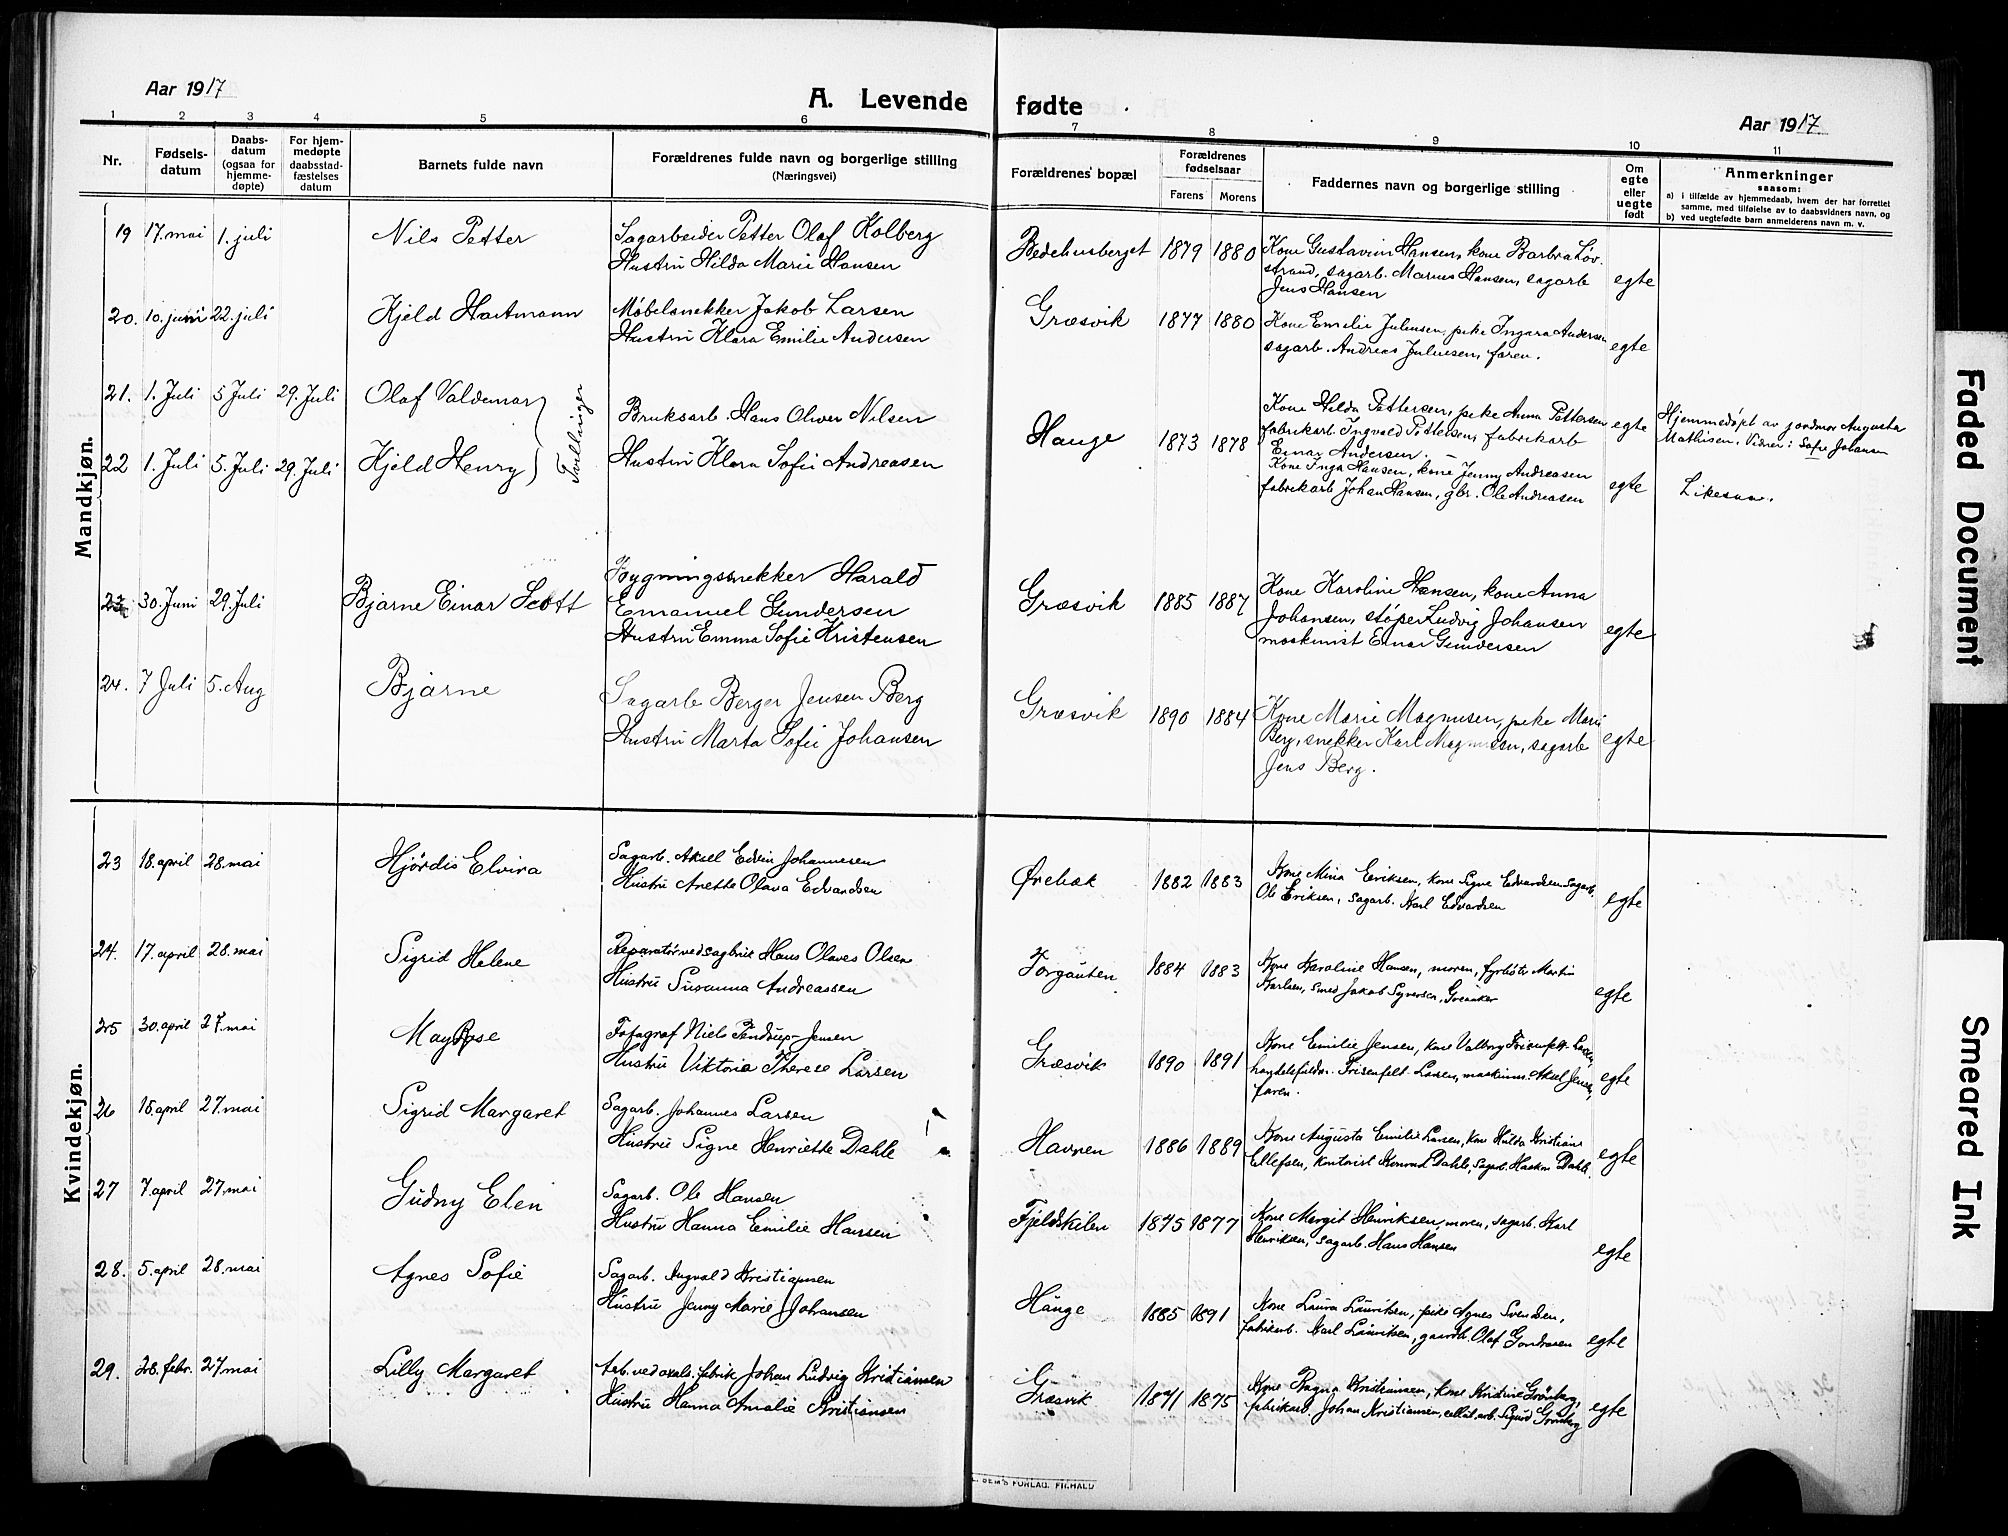 Aar 1917
A. Levende fødte
Aar 1917
1 2 3 4 5 6 7 8 9 10 11
Nr.
Fødselsdatum
Daabsdatum (ogsaa for hjemmedøpte)
For hjemmedøpte daabsstadfæstelses datum
Barnets fulde navn
Forældrenes fulde navn og borgerlige stilling
(Næringsvei)
Forældrenes bopæl
Forældrenes fødselsaar
Farens Morens
Faddernes navn og borgerlige stilling
Om egte eller uegte født
Anmerkninger
saasom:
a) i tilfælde av hjemmedaab, hvem der har forrettet
samme, med tilføielse av to daabsvidners navn, og
b) ved uegtefødte barn anmelderens navn m. v.
Mandkjøn.
19 17. mai 1. juli Nils Petter
Sagarbeider Petter Olaf Kolberg
Hustru Hilda Marie Hansen
Bedehusberget 1879 1880
Kone Gustavine Hansen, kone Barbra Løv-
strand, sagarb. Marius Hansen, sagarb
Jens Hansen
egte
20. 10. juni 22. juli Kjeld Hartmann
Møbelsnekker Jakob Larsen
Hustru Klara Emilie Andersen
Græsvik 1877 1880
Kone Emilie Juliusen, pike Ingara Andersen
sagarb. Andreas Juliusen, faren.
egte
21. 1. Juli 5 Juli 29. Juli Olaf Valdemar
22 1. Juli 5. Juli 29 Juli Kjeld Henry
Tvillinger
Bruksarb. Hans Oliver Nilsen
Hustru Klara Sofie Andreasen
Hauge 1873 1878
Kone Hilda Pettersen, pike Anna Pettersen
fabrikarb. Ingvald Pettersen, fabrikarb
Einar Andersen.
egte
Hjemmedøpt av jordmor Augusta
Mathisen. Vidner: Sofie Johansen
Kone Inga Hansen, kone Jenny Andreasen
fabrikarb Johan Hansen, gbr. Ole Andreasen
egte
Likesaa.
23 30. Juni 29. Juli Bjarne Einar Scott
Bygningssnekker Harald
Emanuel Gundersen
Hustru Emma Sofie Kristensen
Græsvik 1885 1887
Kone Karoline Hansen, kone Anna
Johansen, støper Ludvig Johansen
maskinist Einar Gundersen
egte
24. 7 Juli 5. Aug Bjarne
Sagarb Berger Jensen Berg
Hustru Marta Sofie Johansen
Græsvik 1890 1884
Kone Marie Magnusen, pike Marie
Berg, snekker Karl Magnussen, sagarb
Jens Berg.
egte
Kvindekjøn.
23 18. april 28. mai Hjørdis Elvira
Sagarb. Aksel Edvin Johannesen
Hustru Anette Olava Edvardsen
Ørebæk 1882 1883
Kone Mina Eriksen, kone Signe Edvardsen Sagarb.
Ole Eriksen, sagarb. Karl Edvardsen
egte
24. 17. april 28. mai Sigrid Helene
Reparatør ved sagbruk Hans Olaves Olsen
Hustru Susanna Andreassen
Torgauten 1884 1883
Kone Karoline Hansen, moren, fyrbøter Martin
Karlsen, smed Jakob Syversen, Greaaker
egte
25 30. april 27. mai May Rose
Fotograf Niels Tendrup-Jensen
Hustru Viktoria Therese Larsen
Græsvik 1890 1891
Kone Emilie Jensen, kone Valborg Frisenfelt-Larsen,
handelsfuldm. Frisenfelt Larsen, maskinm. Aksel Jensen,
faren.
egte
26 15. april 27. mai Sigrid Margaret
Sagarb. Johannes Larsen
Hustru Signe Henriette Dahle
Havnen 1886 1889
Kone Augusta Emilie Larsen, kone Hulda Kristiane
Ellefsen, kontorist Konrad Dahle, sagarb. Haakon Dahle.
egte
27 7. april 27 mai Gudny Elen
Sagarb. Ole Hansen
Hustru Hanna Emilie Hansen
Fjeldskilen 1875 1877
Kone Margit Henriksen, moren, sagarb. Karl
Henriksen, sagarb. Hans Hansen
egte
28. 5. april 28. mai Agnes Sofie
Sagarb. Angvald Kristiansen
Hustru Jenny Marie Johansen
Hauge 1885 1891
Kone Laura Lauritsen, pike Agnes Svendsen,
fabrikarb. Karl Lauritsen, gaardb. Olaf Gundersen
egte
29. 28. febr. 27 mai Lilly Margaret
Arb. ved oxals. fabrik Johan Ludvig Kristiansen
Hustru Hanna Amalie Kristiansen
Græsvik 1871 1875
Kone Ragna Kristiansen, kone Kristine Grønberg,
fabrikarb. Johan Kristiansen, cellul. arb. Sigurd Grønberg
egte
SEM'S FORLAG. FR.HALD
Faded Document
Smeared Ink